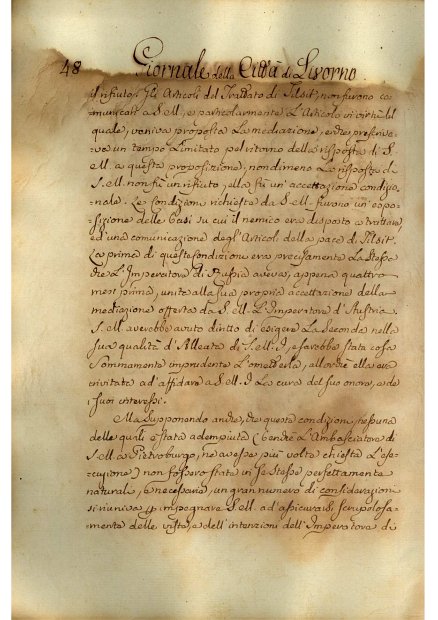 48 Giornale della Città di Livorno
il rifiuto. Gli Articoli del Trattato di Tilsit, non furono co
municati a S. M. e particolarmente L'Articolo in virtù del
quale, veniva proposta La mediazione, e che prescrive
va un tempo Limitato pel ritorno della risposta di S.
M. a questa proposizione, nondimeno La risposta di
S. M. non fù un rifiuto, ella fù un' accettazione condizio-
nale. Le condizioni richieste da S. M. furono un' espo-
sizione delle Basi su cui il nemico era disposto a trattare,
ed una comunicazione degl' Articoli della pace di Tilsit.
La prima di queste condizioni era precisamente La stessa
che L' Imperatore di Russia aveva, appena quattro
mesi prima, unita alla sua propria accettazione della
mediazione offerta da S. M. L' Imperatore d' Austria.
S. M. averebbe avuto diritto di esigere La Seconda nella
sua qualità d' Alleata di S. M. I, e sarebbe stata cosa
Sommamente imprudente L' ometterla, allorchè ella era
invitata ad' affidare a S. M. I La cura del suo onore, e de
i suoi interessi.
Ma Supponendo anche, che queste condizioni, nessuna
delle quali è stata adempiuta (benchè L' Ambasciatore di
S. M. a Pietroburgo, ne avesse più volte chiesta L' ese-
cuzione) non fossero state in se stesse perfettamente
naturali, e necessarie, un gran numero di considerazioni
si univa p insegnare S. M. ad' assicurarsi scrupolosa-
mente delle viste, e dell' intenzioni dell' Imperatore di